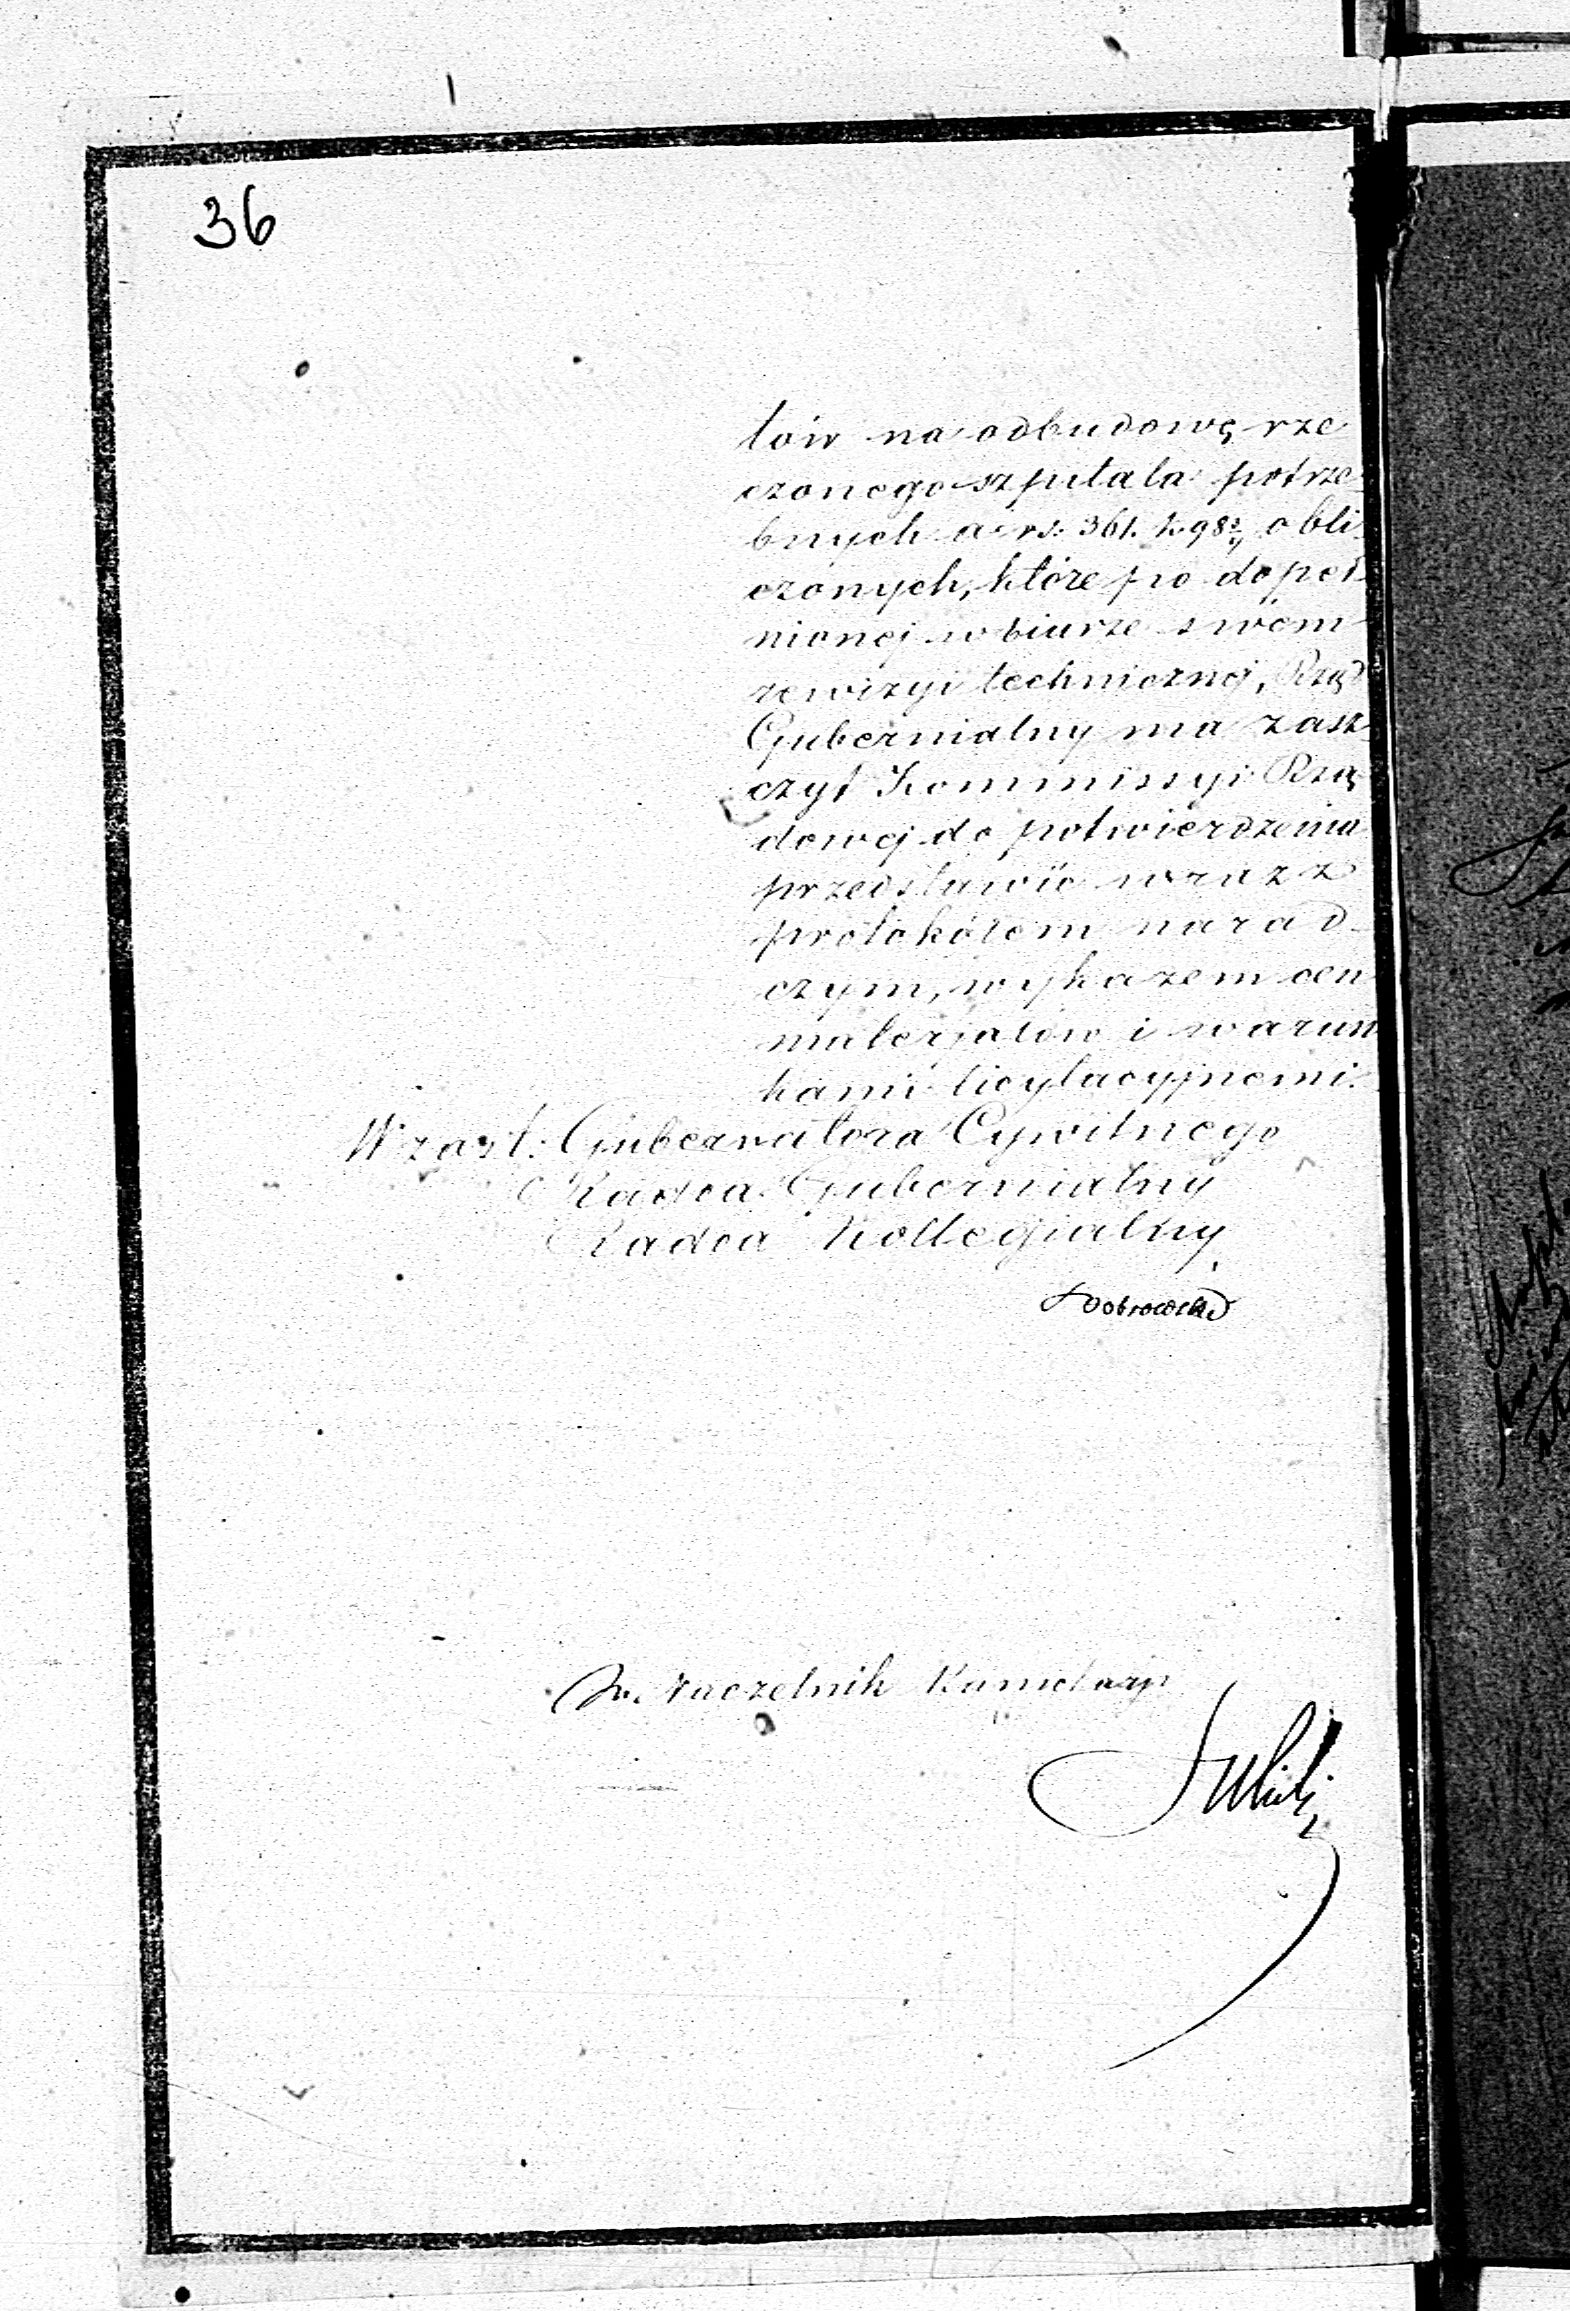 36
tów na odbudowę rze
czonego szpitala potrze-
bnych a rs. 361. k. 98 obli-
czonych, które po dopeł-
nionej w biurze swém
rewizyi technicznej, Rząd
Gubernialny ma zasz-
czyt Kommissyi Rzą-
dowej do potwierdzenia
przedstawić wraz z
protokółem narad-
czym, wykazem cen
materjałów i warun
kami licytacyjnemi.
W zast. Gubernatora Cywilnego
Radca Gubernialny
Radca Kollegjalny
Dobrowolski
Naczelnik Kancelaryi